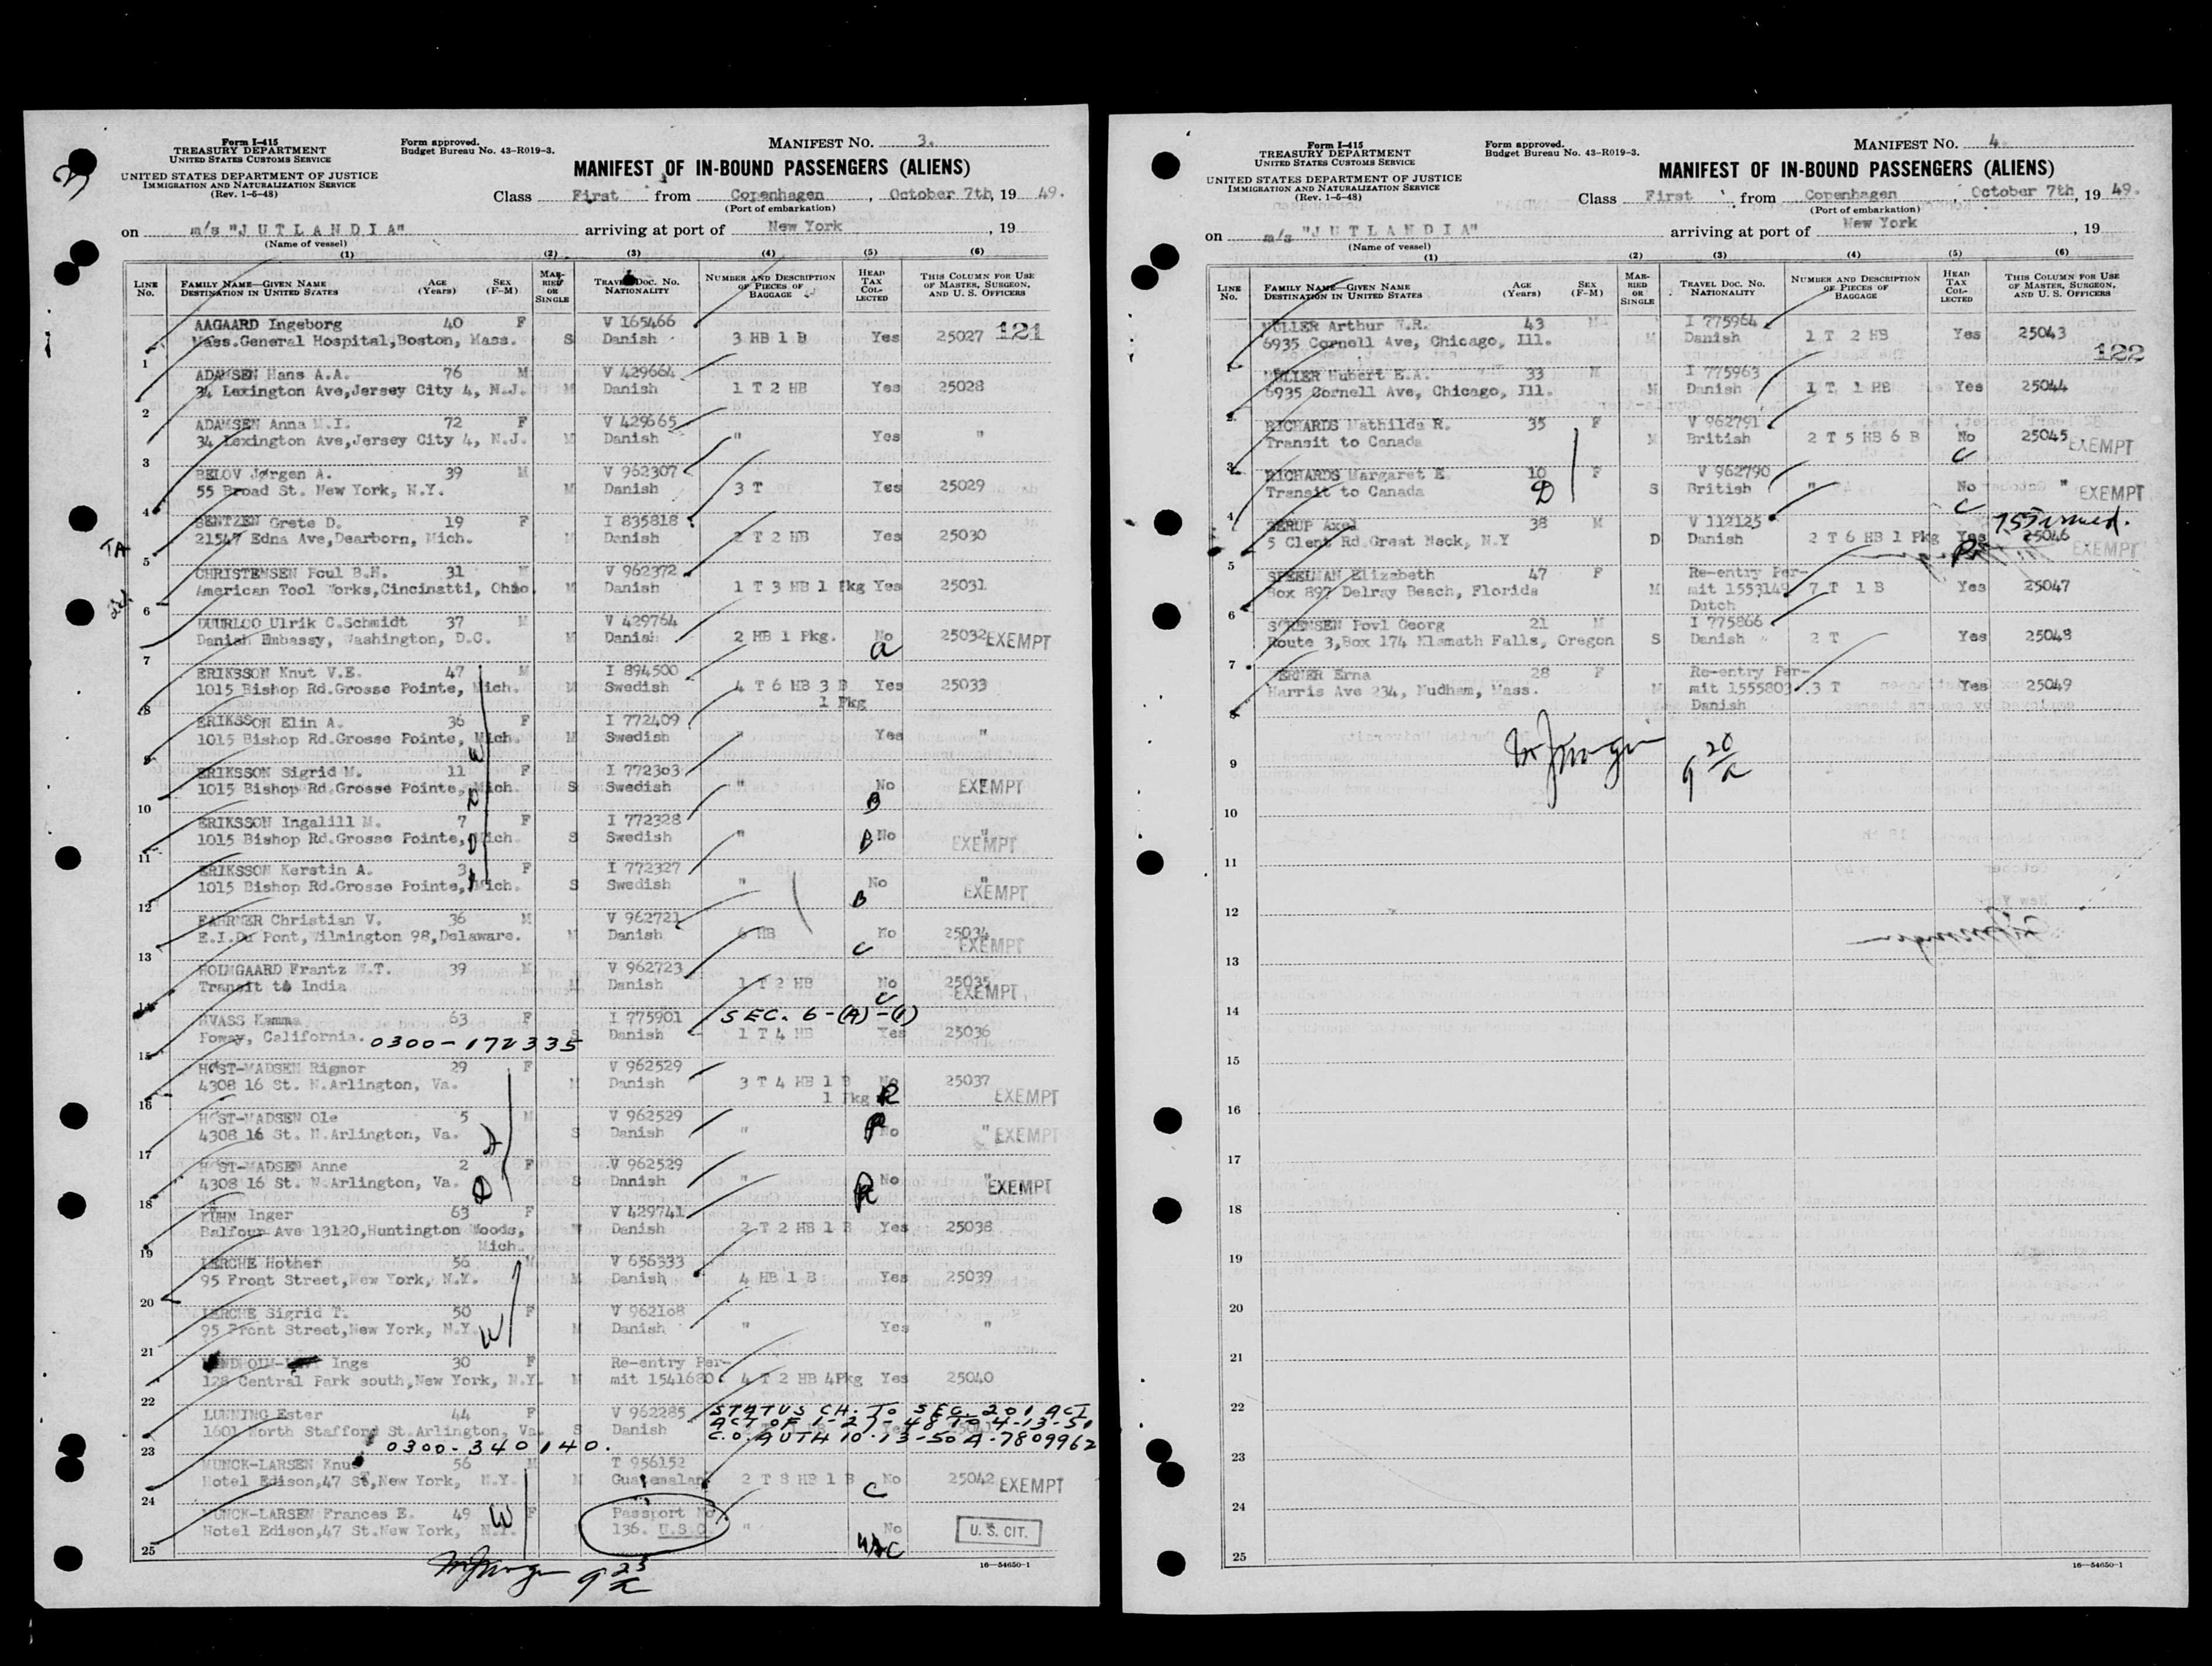 Form I-415
TREASURY DEPARTMENT
UNITED STATES CUSTOMS SERVICE
UNITED STATES DEPARTMENT OF JUSTICE
IMMIGRATION AND NATURALIZATION SERVICE
(Rev. 1-6-48)
Form approved.
Budget Bureau No. 43-R019-3.
MANIFEST NO. 3.
MANIFEST OF IN-BOUND PASSENGERS (ALIENS)
Class First from Copenhagen, October 7th, 19 49.
(Port of embarkation)
on m/s "J U T L A N D I A" arriving at port of New York, 19
(Name of vessel)
(1) (2) (3) (4) (5) (6)
LINE No. FAMILY NAME—GIVEN NAME DESTINATION IN UNITED STATES AGE (Years) SEX (F-M) MARRIED OR SINGLE TRAVEL DOC. No. NATIONALITY NUMBER AND DESCRIPTION OF PIECES OF BAGGAGE HEAD TAX COLLECTED THIS COLUMN FOR USE OF MASTER, SURGEON, AND U. S. OFFICERS
AAGAARD Ingeborg 40 F V 165466 121
Mass.General Hospital,Boston, Mass. S Danish 3 HB 1 B Yes 25027
1
ADAMSEN Hans A.A. 76 M V 429664
34 Lexington Ave,Jersey City 4, N.J. M Danish 1 T 2 HB Yes 25028
2
ADAMSEN Anna M.I. 72 F V 429665
34 Lexington Ave,Jersey City 4, N.J. M Danish " Yes "
3
BELOV Jørgen A. 39 M V 962307
55 Broad St. New York, N.Y. M Danish 3 T Yes 25029
4
BENTZEN Grete D. 19 F I 835818
TA 21547 Edna Ave,Dearborn, Mich. M Danish 2 T 2 HB Yes 25030
5
CHRISTENSEN Poul B.H. 31 M V 962372
American Tool Works,Cincinatti, Ohio. M Danish 1 T 3 HB 1 Pkg Yes 25031
6
DUURLOO Ulrik C.Schmidt 37 M V 429764
Danish Embassy, Washington, D.C. M Danish 2 HB 1 Pkg. No 25032 EXEMPT
7
ERIKSSON Knut V.E. 47 M I 894500
1015 Bishop Rd.Grosse Pointe, Mich. M Swedish 4 T 6 HB 3 B Yes 25033
1 Pkg
8
ERIKSSON Elin A. 36 F I 772409
1015 Bishop Rd.Grosse Pointe, Mich. M Swedish " Yes "
9
ERIKSSON Sigrid M. 11 F I 772303
1015 Bishop Rd.Grosse Pointe, Mich. S Swedish " No B EXEMPT
10
ERIKSSON Ingalill M. 7 F I 772328
1015 Bishop Rd.Grosse Pointe, Mich. S Swedish " B No " EXEMPT
11
ERIKSSON Kerstin A. 3 F I 772327
1015 Bishop Rd.Grosse Pointe, Mich. S Swedish " No B " EXEMPT
12
FAHRNER Christian V. 36 M V 962721
E.I.Du Pont,Wilmington 98,Delaware. M Danish 6 HB No C 25034 EXEMPT
13
HOLMGAARD Frantz W.T. 39 M V 962723
Transit to India M Danish 1 T 2 HB No C 25035 EXEMPT
14
HVASS Kamma 63 F I 775901 SEC. 6-(A)-(1)
Poway, California. 0300-172335 S Danish 1 T 4 HB Yes 25036
15
HØST-MADSEN Rigmor 29 F V 962529
4308 16 St. N.Arlington, Va. M Danish 3 T 4 HB 1 B No 25037
1 Pkg R EXEMPT
16
HØST-MADSEN Ole 5 M V 962529
4308 16 St. N.Arlington, Va. S Danish " No " EXEMPT
17
HØST-MADSEN Anne 2 F V 962529
4308 16 St. N.Arlington, Va. D S Danish " R No " EXEMPT
18
KÜHN Inger 63 F V 429741
Balfour Ave 13120,Huntington Woods, W Danish 2 T 2 HB 1 B Yes 25038
Mich.
19
LERCHE Hother 56 M V 656333
95 Front Street,New York, N.Y. M Danish 4 HB 1 B Yes 25039
20
LERCHE Sigrid T. 50 F V 962108
95 Front Street,New York, N.Y. W M Danish " Yes "
21
Inge 30 F Re-entry Per-
128 Central Park south,New York, N.Y. M mit 1541680 4 T 2 HB 4Pkg Yes 25040
22
LUNNING Ester 44 F V 962285 STATUS CH. TO SEC. 201 ACT
1601 North Stafford St.Arlington, Va. S Danish ACT OF 1-27-48 TO 4-13-51
0300-340140. C.O. AUTH 10-13-50 A-7809962
23
MUNCK-LARSEN Knud 56 M T 956152
Hotel Edison,47 St,New York, N.Y. M Guatemalan 2 T 8 HB 1 B No C 25042 EXEMPT
24
MUNCK-LARSEN Frances E. 49 W F Passport No.
Hotel Edison,47 St.New York, N.Y. 136. U.S.C. " No U. S. CIT.
25
USC
9 25/a
16—54650-1
Form I-415
TREASURY DEPARTMENT
UNITED STATES CUSTOMS SERVICE
UNITED STATES DEPARTMENT OF JUSTICE
IMMIGRATION AND NATURALIZATION SERVICE
(Rev. 1-6-48)
Form approved.
Budget Bureau No. 43-R019-3.
MANIFEST NO. 4.
MANIFEST OF IN-BOUND PASSENGERS (ALIENS)
Class First from Copenhagen, October 7th, 19 49.
(Port of embarkation)
on m/s "J U T L A N D I A" arriving at port of New York, 19
(Name of vessel)
(1) (2) (3) (4) (5) (6)
LINE No. FAMILY NAME—GIVEN NAME DESTINATION IN UNITED STATES AGE (Years) SEX (F-M) MARRIED OR SINGLE TRAVEL DOC. No. NATIONALITY NUMBER AND DESCRIPTION OF PIECES OF BAGGAGE HEAD TAX COLLECTED THIS COLUMN FOR USE OF MASTER, SURGEON, AND U. S. OFFICERS
MÜLLER Arthur N.R. 43 M I 775964
6935 Cornell Ave, Chicago, Ill. M Danish 1 T 2 HB Yes 25043
122
1
MÜLLER Hubert E.A. 33 M I 775963
6935 Cornell Ave, Chicago, Ill. M Danish 1 T 1 HB Yes 25044
2
RICHARDS Mathilda R. 35 F V 962791
Transit to Canada M British 2 T 5 HB 6 B No C 25045 EXEMPT
3
RICHARDS Margaret E. 10 F V 962790
Transit to Canada D S British " No C " EXEMPT
4
SERUP Axel 38 M V 112125
5 Clent Rd.Great Neck, N.Y D Danish 2 T 6 HB 1 Pkg Yes 25046 EXEMPT
5
SPEELMAN Elizabeth 47 F Re-entry Per-
Box 897 Delray Beach, Florida M mit 1553149 7 T 1 B Yes 25047
Dutch
6
SØRENSEN Povl Georg 21 M I 775866
Route 3,Box 174 Klamath Falls, Oregon S Danish 2 T Yes 25048
7
VERNER Erna 28 F Re-entry Per-
Harris Ave 234, Nudham, Mass. M mit 1555803 3 T Yes 25049
Danish
8
9 20/a
9
10
11
12
13
14
15
16
17
18
19
20
21
22
23
24
25
16—54650-1